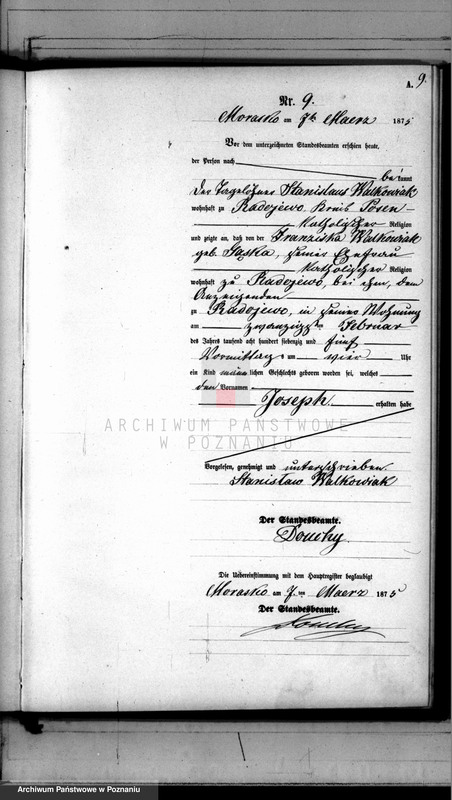 A. 9.
Nr. 9.
Morasko am 7ten Maerz 1875
Vor dem unterzeichneten Standesbeamten erschien heute,
der Person nach
bekannt
der Tagelöhner Stanislaus Walkowiak
wohnhaft zu Radojewo, Kreis Posen
katholischer Religion
und zeigte an, daß von der Franziska Walkowiak
geb. seiner Ehefrau
katholischer Religion
wohnhaft zu Radojewo, bei ihm, dem
Anzeigenden
zu Radojewo, in seiner Wohnung
am zwanzigsten Februar
des Jahres tausend acht hundert siebenzig und fünf
Vormittags um vier Uhr
ein Kind männlichen Geschlechts geboren worden sei, welches
den Vornamen
Joseph erhalten habe
ARCHIWUM PAŃSTWOWE
W POZNANIU
Vorgelesen, genehmigt und unterschrieben
Stanisław Walkowiak
Der Standesbeamte.
Die Uebereinstimmung mit dem Hauptregister beglaubigt
Morasko am 7. ten Maerz 1875
Der Standesbeamte.
Archiwum Państwowe w Poznaniu